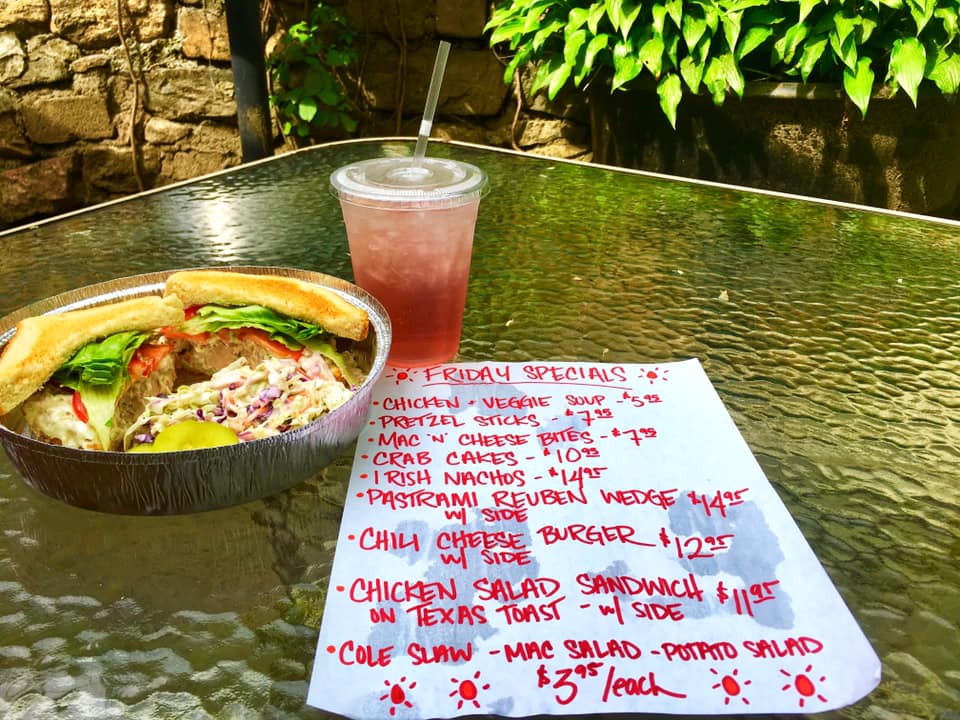 FRIDAY SPECIALS
• CHICKEN + VEGGIE SOUP - $5.95
• PRETZEL STICKS - $7.95
• MAC 'N' CHEESE BITES - $7.95
• CRAB CAKES - $10.95
• IRISH NACHOS - $14.95
• PASTRAMI REUBEN WEDGE $14.95
W/ SIDE
• CHILI CHEESE BURGER $12.95
W/ SIDE
• CHICKEN SALAD SANDWICH $11.95
ON TEXAS TOAST - W/ SIDE
• COLE SLAW - MAC SALAD - POTATO SALAD
$3.95/each